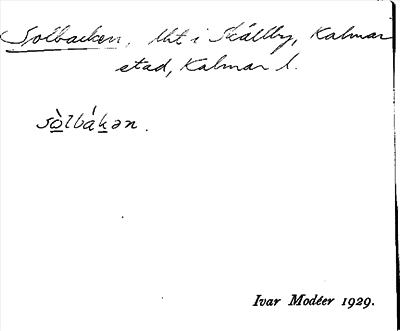 Solbacken, lht i Skälby, Kalmar
stad, Kalmar l.
sòlbákən.
Ivar Modéer 1929.